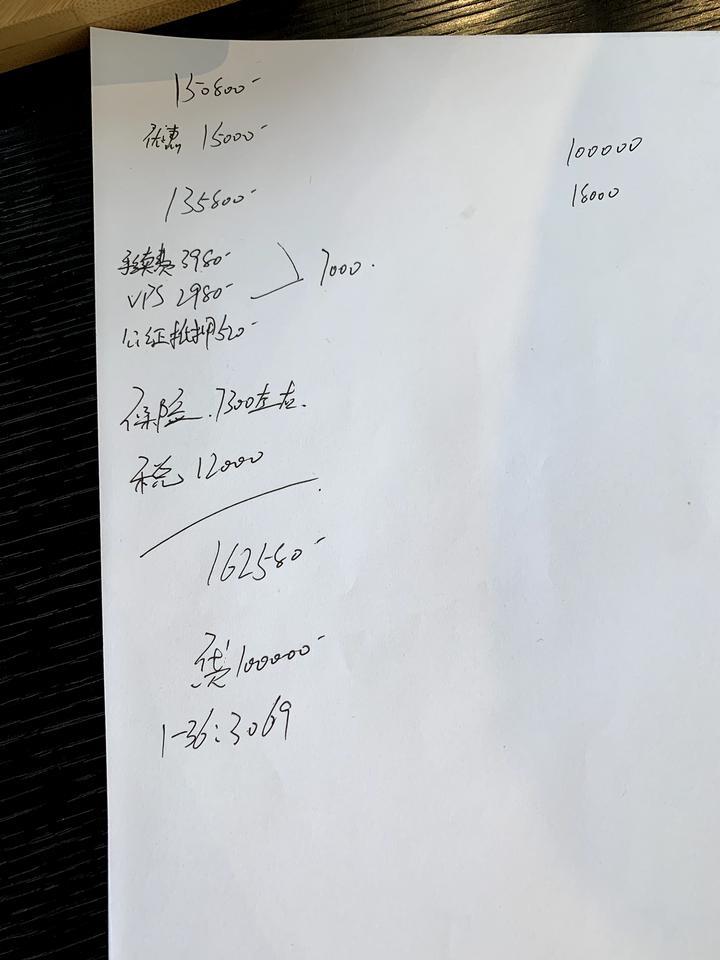 150800-
优惠 15000-
135800-
手续费 3980-
VPS 2980-
7000.
公证抵押520-
保险.7300左右.
税 12000
162580-
贷100000-
1-36:3069
100000
18000